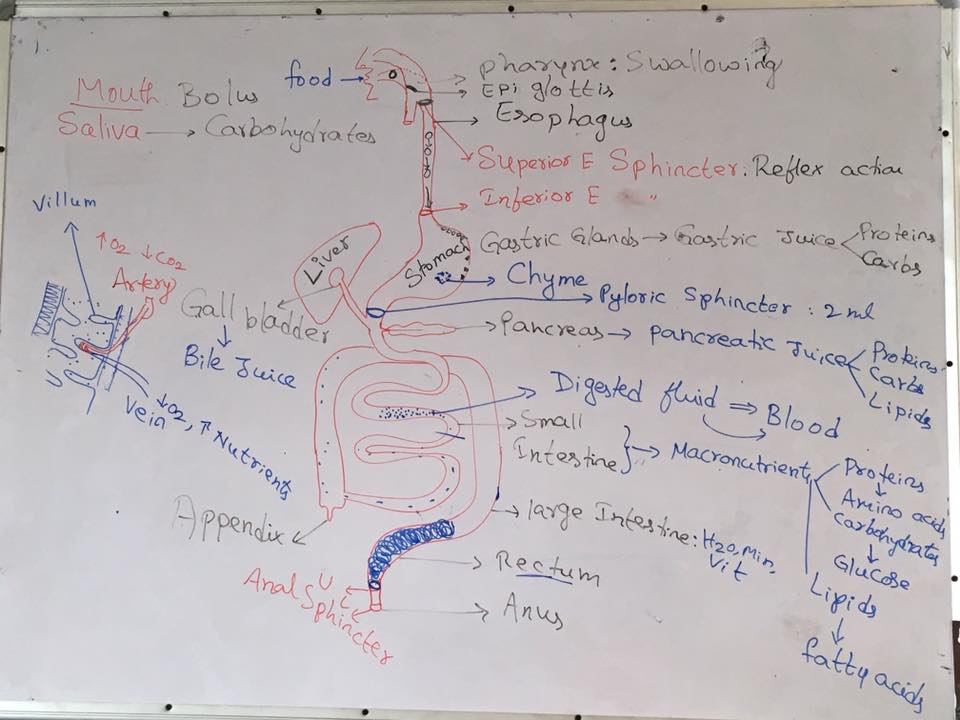 food
Mouth Bolus
Saliva → Carbohydrates
pharynx: Swallowing
EPi glottis
Esophagus
Superior E Sphincter. Reflex action
Inferior E "
Gastric Glands → Gastric Juice
Proteins
Carbs
Stomach
Liver
Chyme
Pyloric Sphincter : 2 ml
Villum
↑O2 ↓CO2
Artery
Gall bladder
Bile Juice
Pancreas → pancreatic Juice
Proteins
Carbs
Lipids
Digested fluid ⇒ Blood
Small
Intestine } → Macronutrients
Proteins
Amino acids
carbohydrates
Glucose
Lipids
fatty acids
Vein ↓O2, ↑ Nutrients
Appendix
large Intestine: H2O, Min,
Vit
Rectum
Anal Sphincter
U
L
Anus